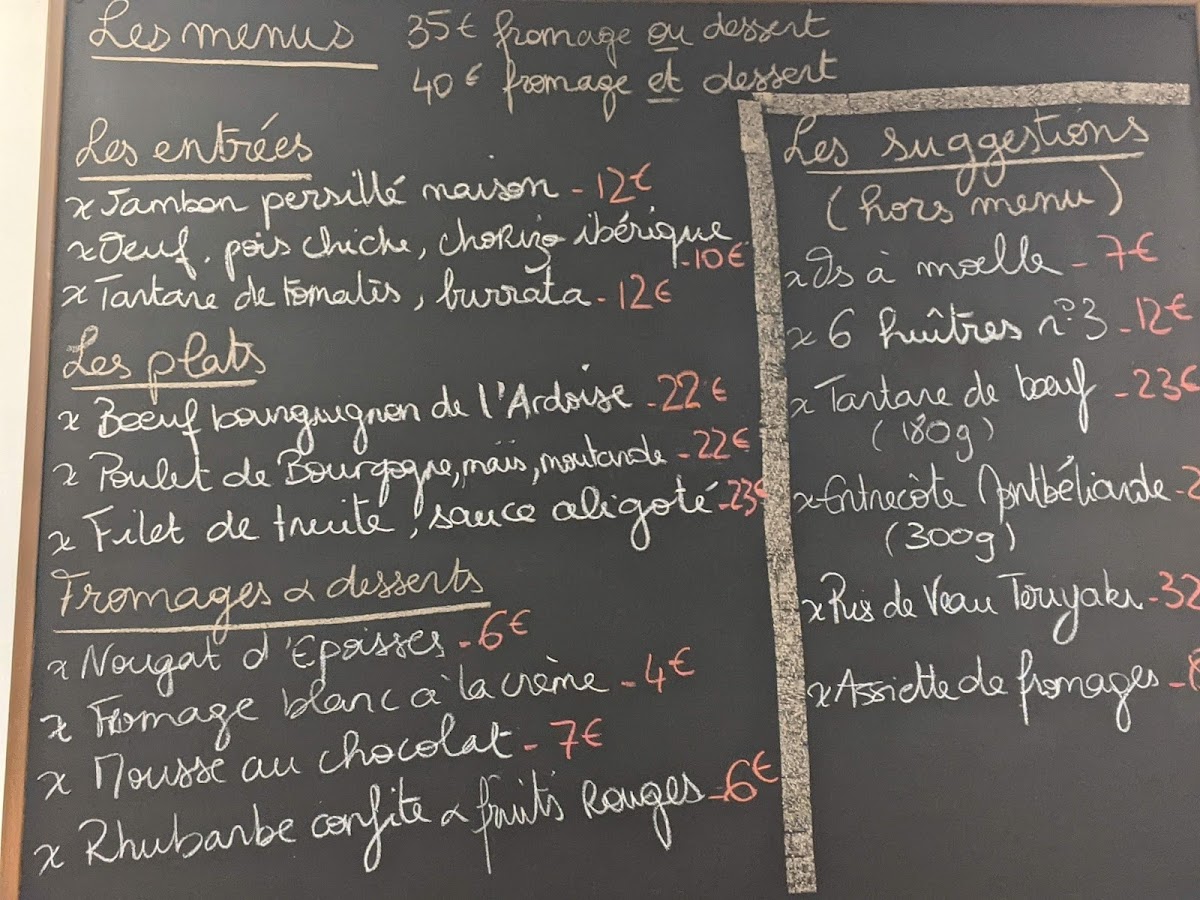 Les menus 35€ fromage ou dessert
40€ fromage et dessert
Les entrées
x Jambon persillé maison - 12€
x Oeuf, pois chiche, chorizo ibérique
- 10€
x Tartare de tomates, burrata - 12€
Les plats
x Boeuf bourguignon de l'Ardoise - 22€
x Poulet de Bourgogne, maïs, moutarde - 22€
x Filet de truite, sauce aligoté - 23€
Fromages & desserts
x Nougat d'Epoisses - 6€
x Fromage blanc à la crème - 4€
x Mousse au chocolat - 7€
x Rhubarbe confite & fruits Rouges - 6€
Les suggestions
(hors menu)
x Os à moelle - 7€
x 6 huîtres n°3 - 12€
x Tartare de bœuf - 23€
(180g)
x Entrecôte Montbéliarde - 2
(300g)
x Ris de Veau Teriyaki - 32
x Assiette de fromages - 8